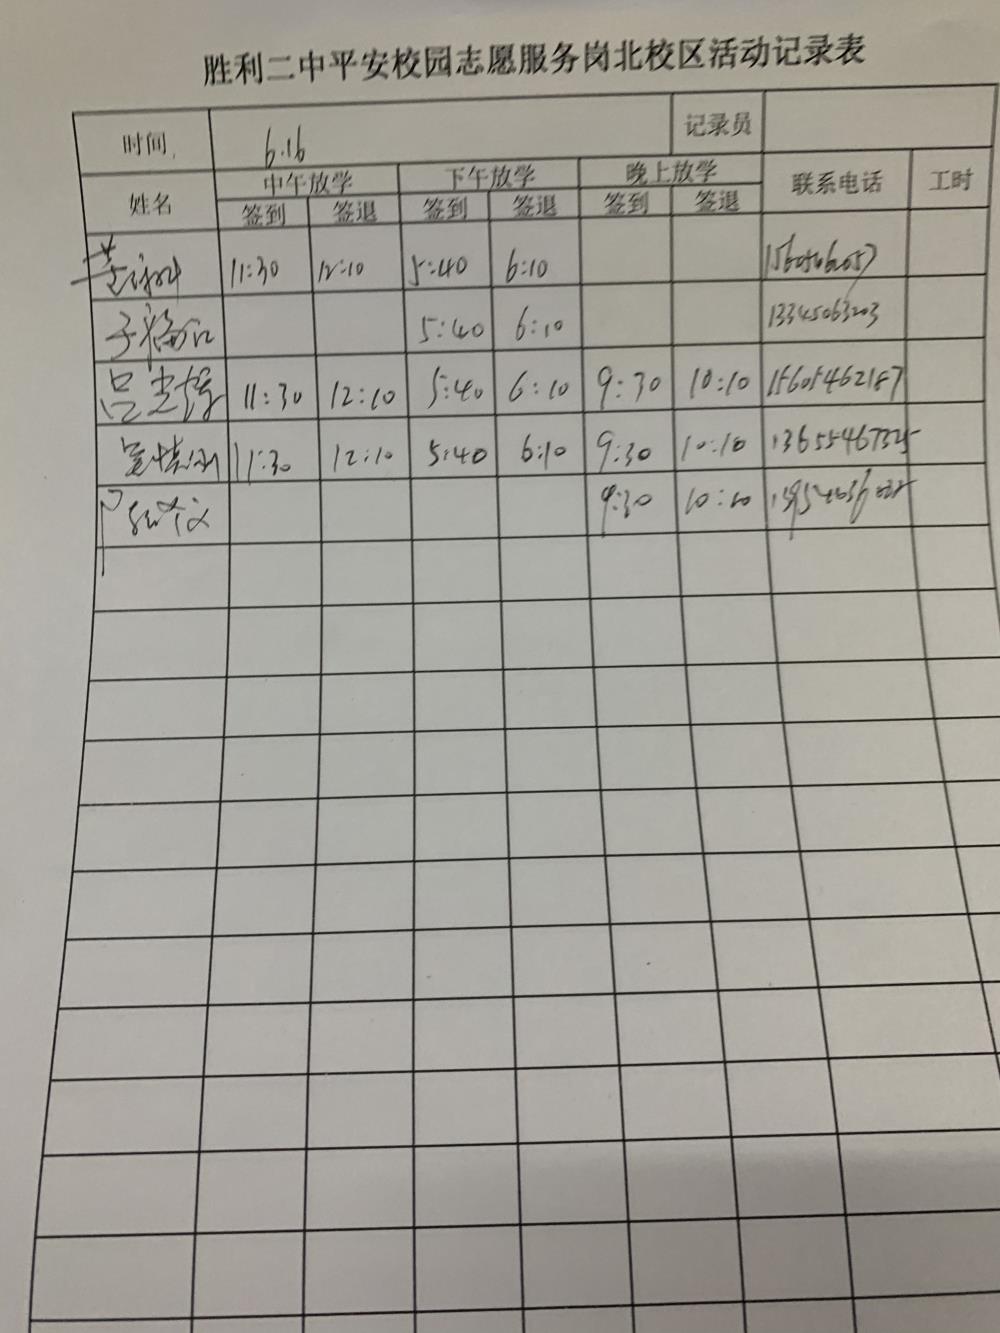 胜利二中平安校园志愿服务岗北校区活动记录表
时间 6.16 记录员
姓名 中午放学 下午放学 晚上放学 联系电话 工时
签到 签退 签到 签退 签到 签退
11:30 12:10 5:40 6:10
5:40 6:10 13345063203
吕 11:30 12:10 5:40 6:10 9:30 10:10 15605462187
11:30 12:10 5:40 6:10 9:30 10:10 13655467325
9:30 10:10